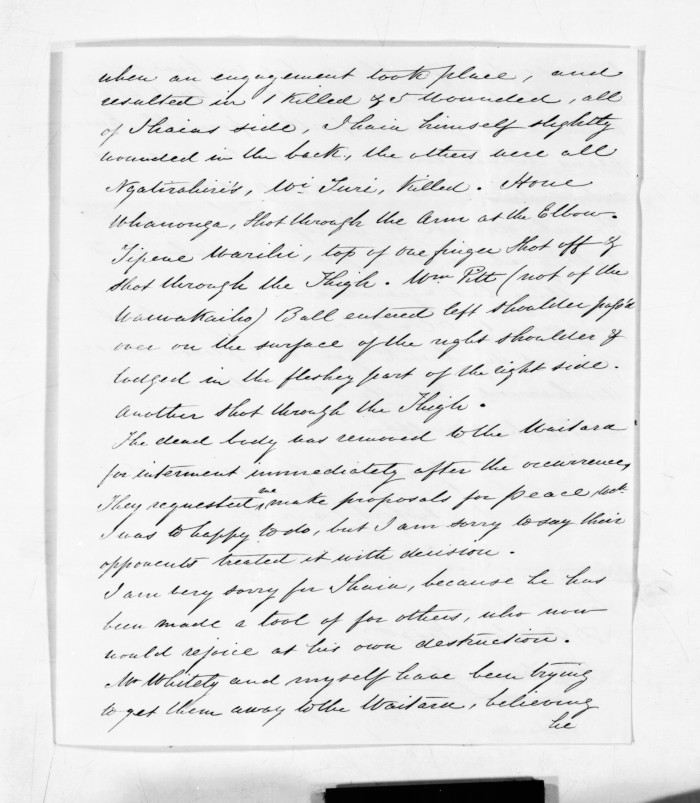 when an engagement took place, and
resulted in 1 Killed & 5 Wounded, all
of Ihaias side, Ihaia himself slightly
wounded in the back, the others were all
Ngatirahiri's, Wi Turi, Killed. Hone
Whanonga, Shot through the Arm at the Elbow.
Tipene Warihi, top of one finger Shot off &
Shot through the Thigh. Wm Pitt (not of the
Waiwakaiho) Ball entered left Shoulder pass'd
over on the surface of the right shoulder &
lodged in the fleshey part of the right side.
Another shot through the Thigh.
The dead body was removed to the Waitara
for interment immediately after the occurrence,
They requested me make proposals for peace wch
I was to happy to do, but I am sorry to say their
opponents treated it with derision.
I am very sorry for Ihaia, because he has
been made a tool of for others, who now
would rejoice at his own destruction.
Mr Whitely and myself have been trying
to get them away to the Waitara, believing
he